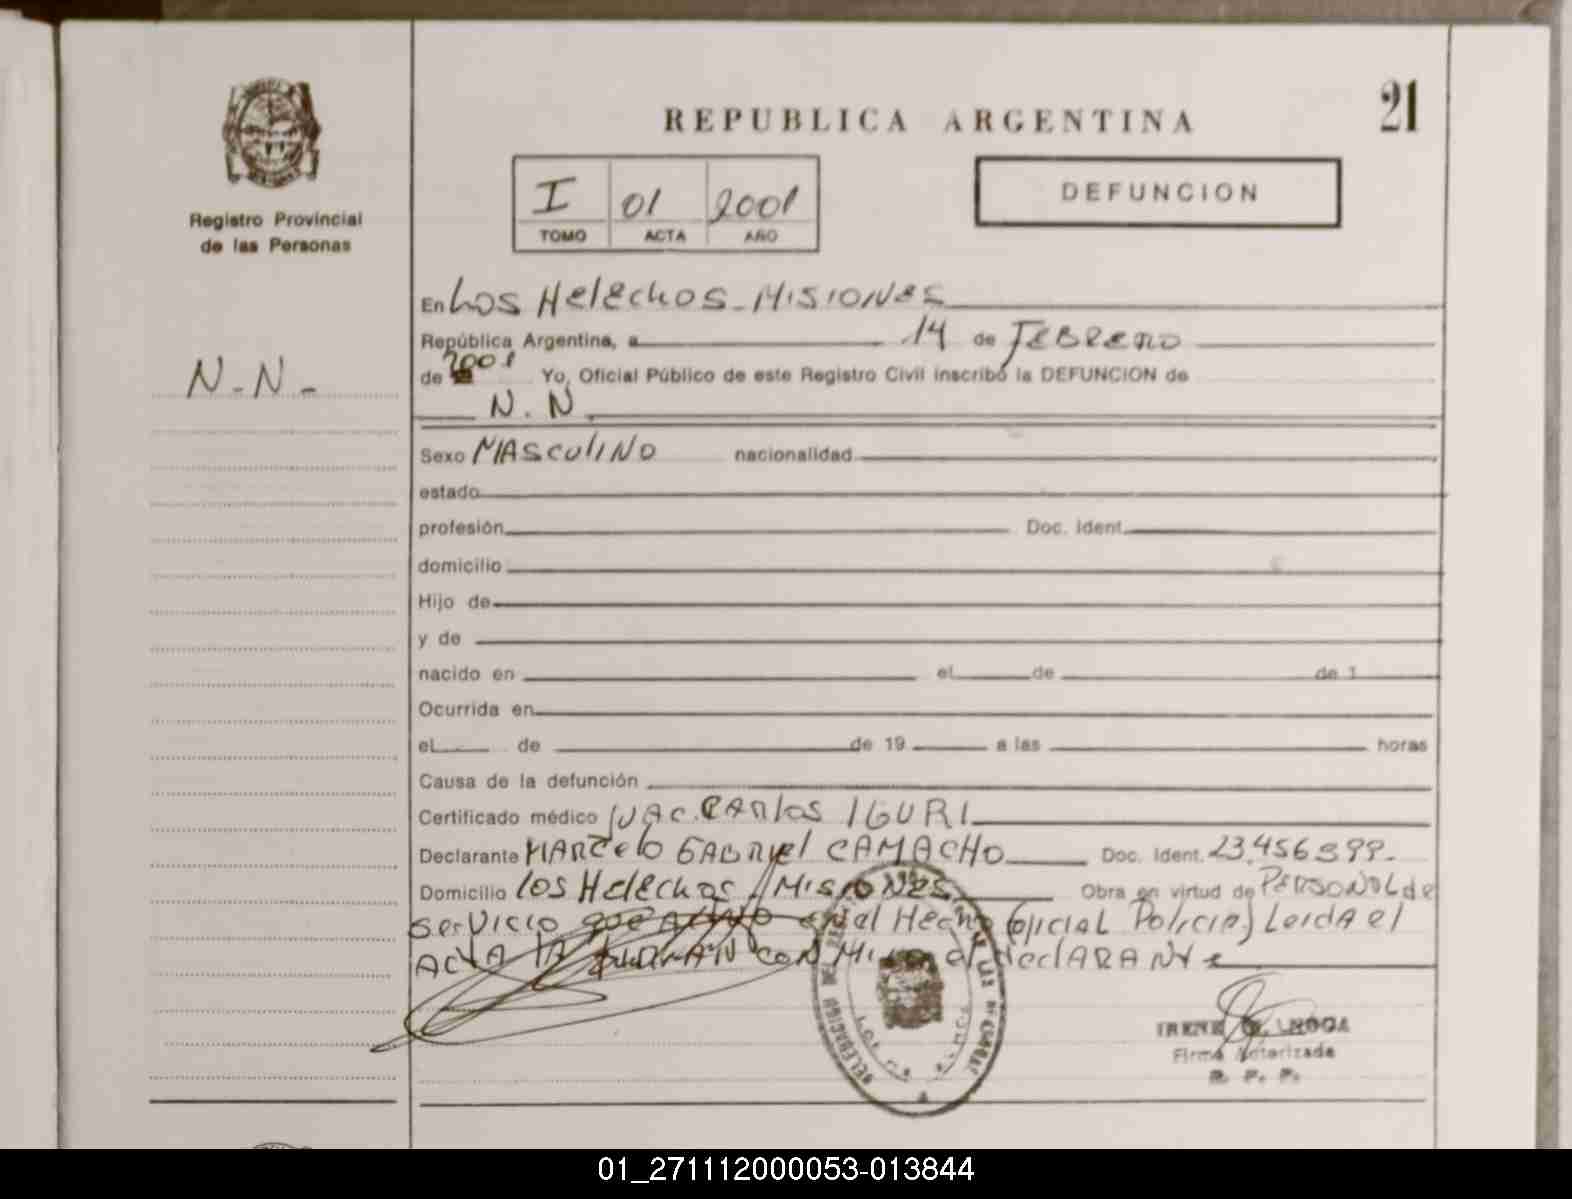 Registro Provincial
de las Personas
REPUBLICA ARGENTINA
21
I 01 2001
TOMO ACTA AÑO
DEFUNCION
En Los Helechos - Misiones
República Argentina, a 14 de Febrero
de 2001 Yo, Oficial Público de este Registro Civil inscribo la DEFUNCION de
N. N
N-N-
Sexo Masculino nacionalidad
estado
profesión Doc. Ident.
domicilio
Hijo de
y de
nacido en el de de 1
Ocurrida en
el de de 19 a las horas
Causa de la defunción
Certificado médico Carlos IGURI
Declarante Marcelo Gabriel CAMACHO Doc. Ident. 23.456.399-
Domicilio Los Helechos - Misiones Obra en virtud de Personal de
servicio que en el Hecho (oficial Policia) Leida el
Acta la con el declarante
IRENE
Firma Autorizada
R. P. P.
01_271112000053-013844